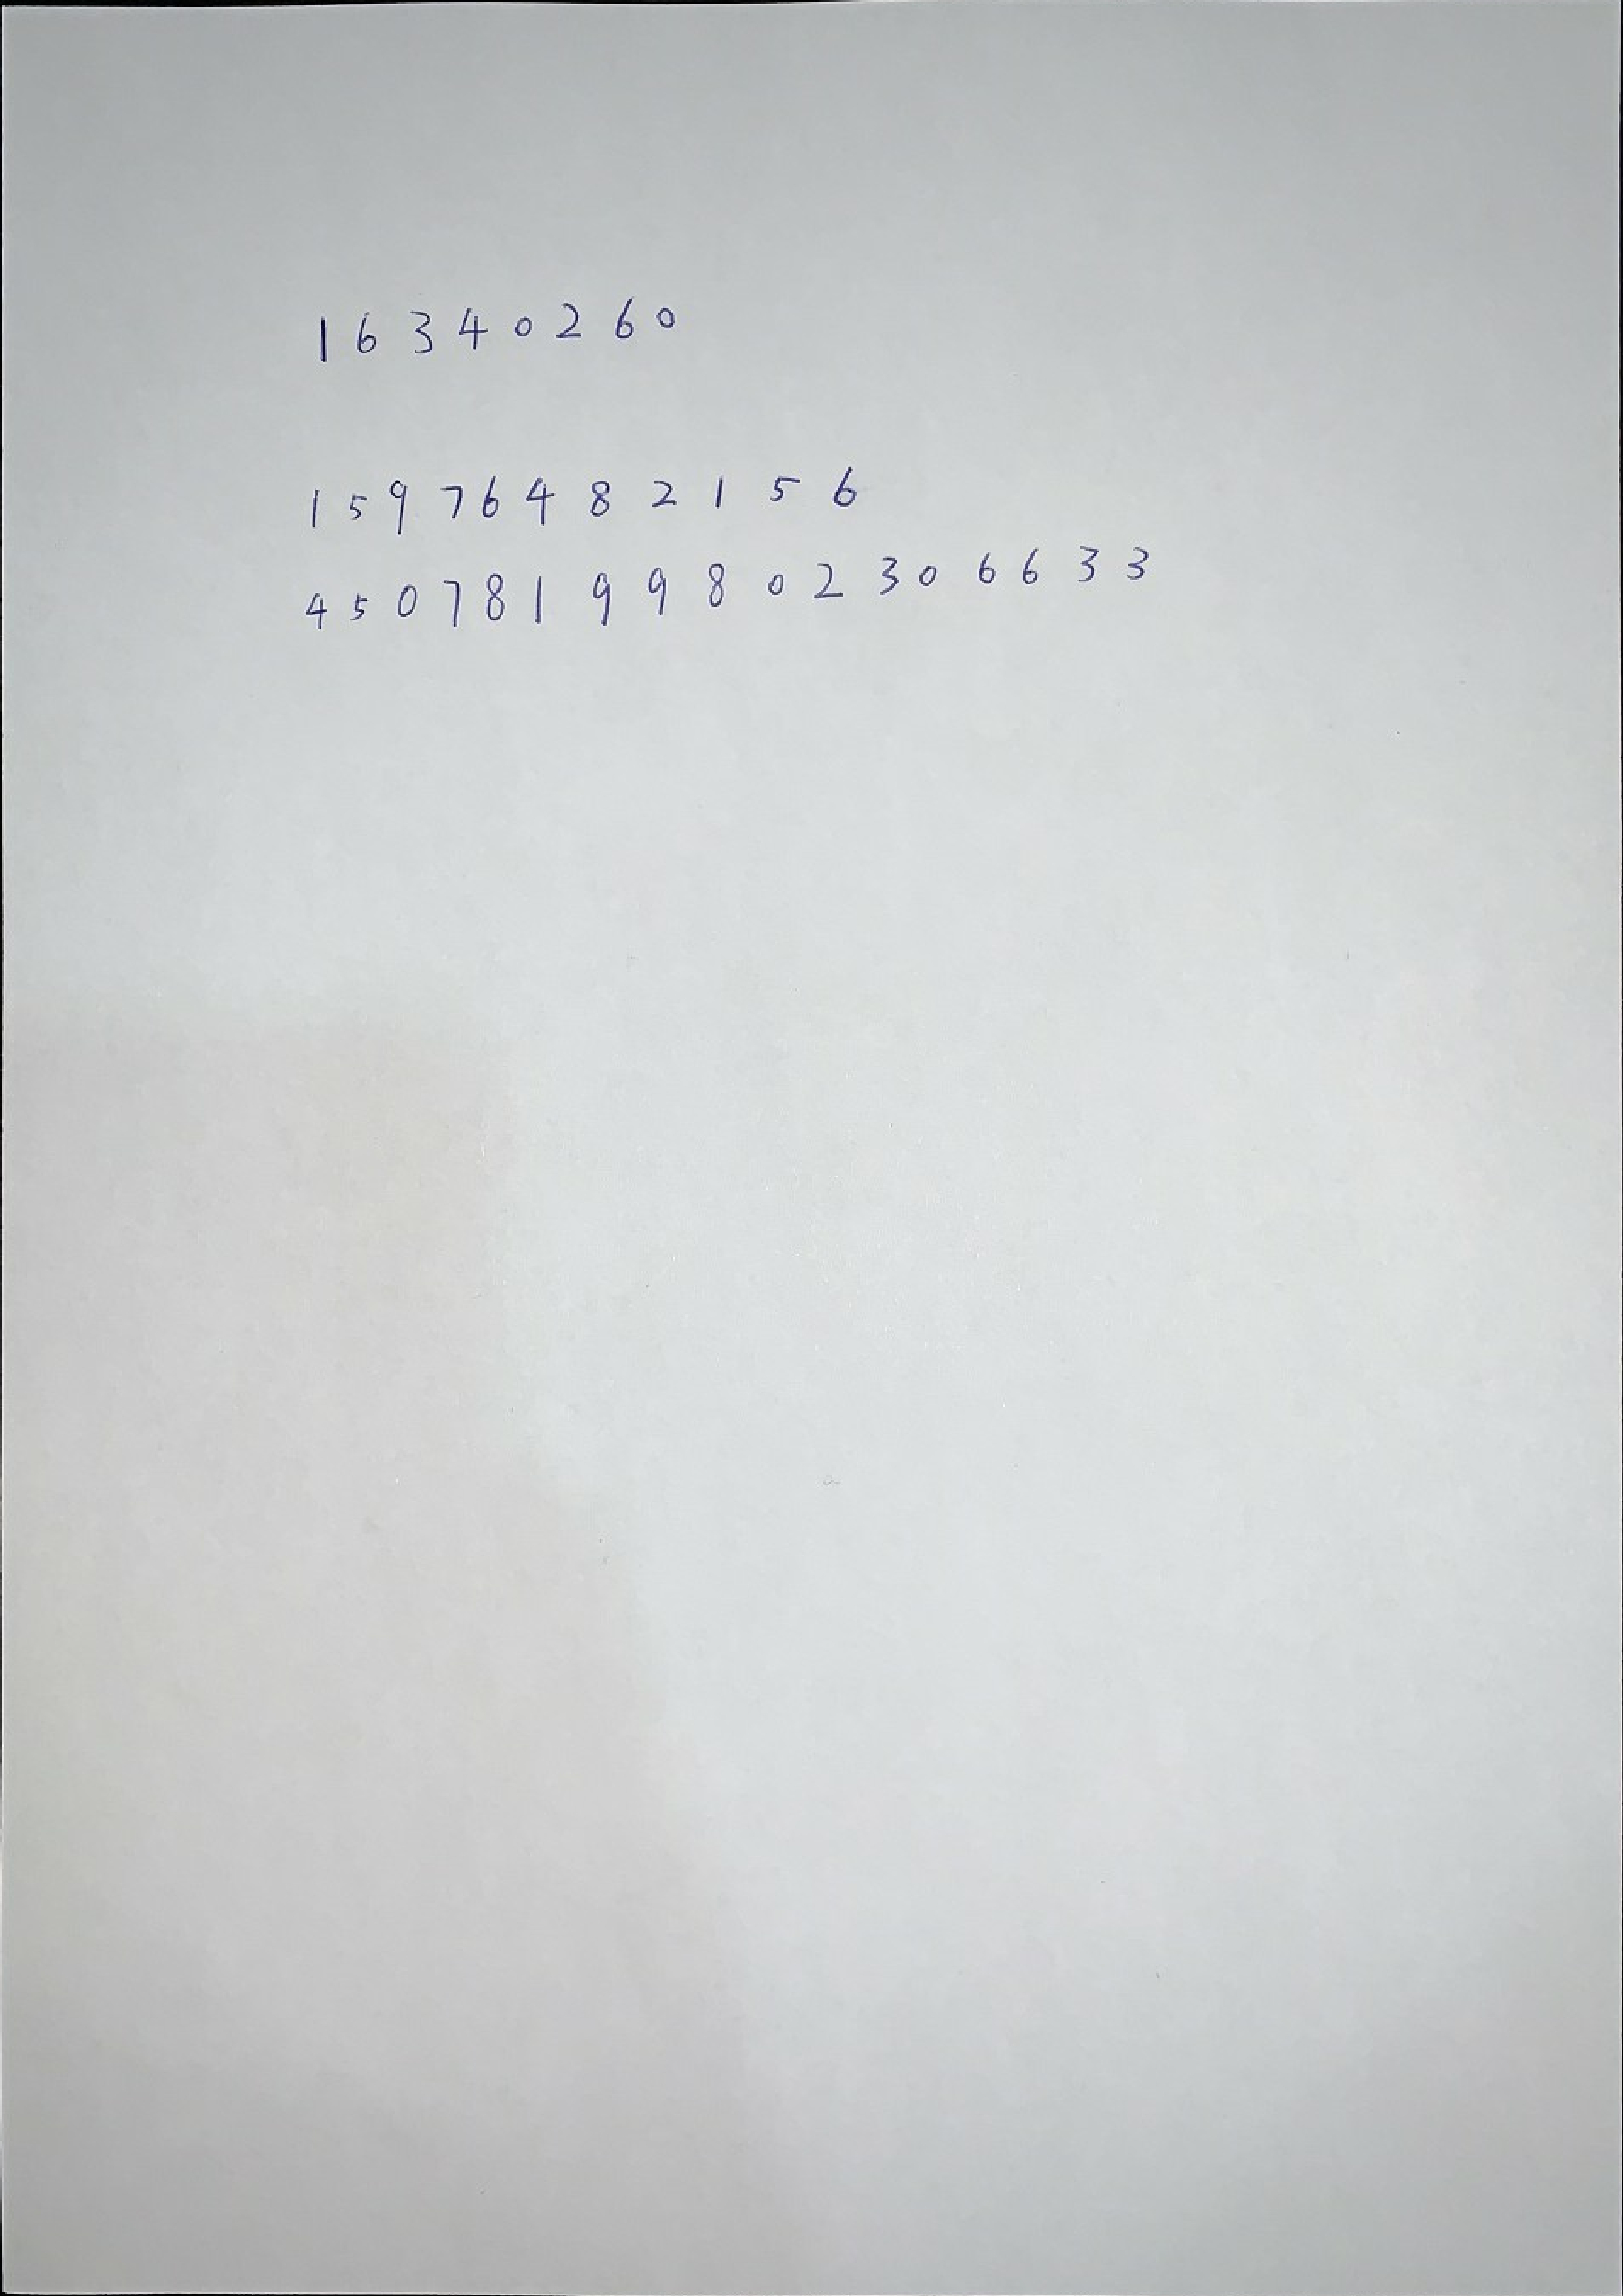 1 6 3 4 0 2 6 0
1 5 9 7 6 4 8 2 1 5 6
4 5 0 7 8 1 9 9 8 0 2 3 0 6 6 3 3